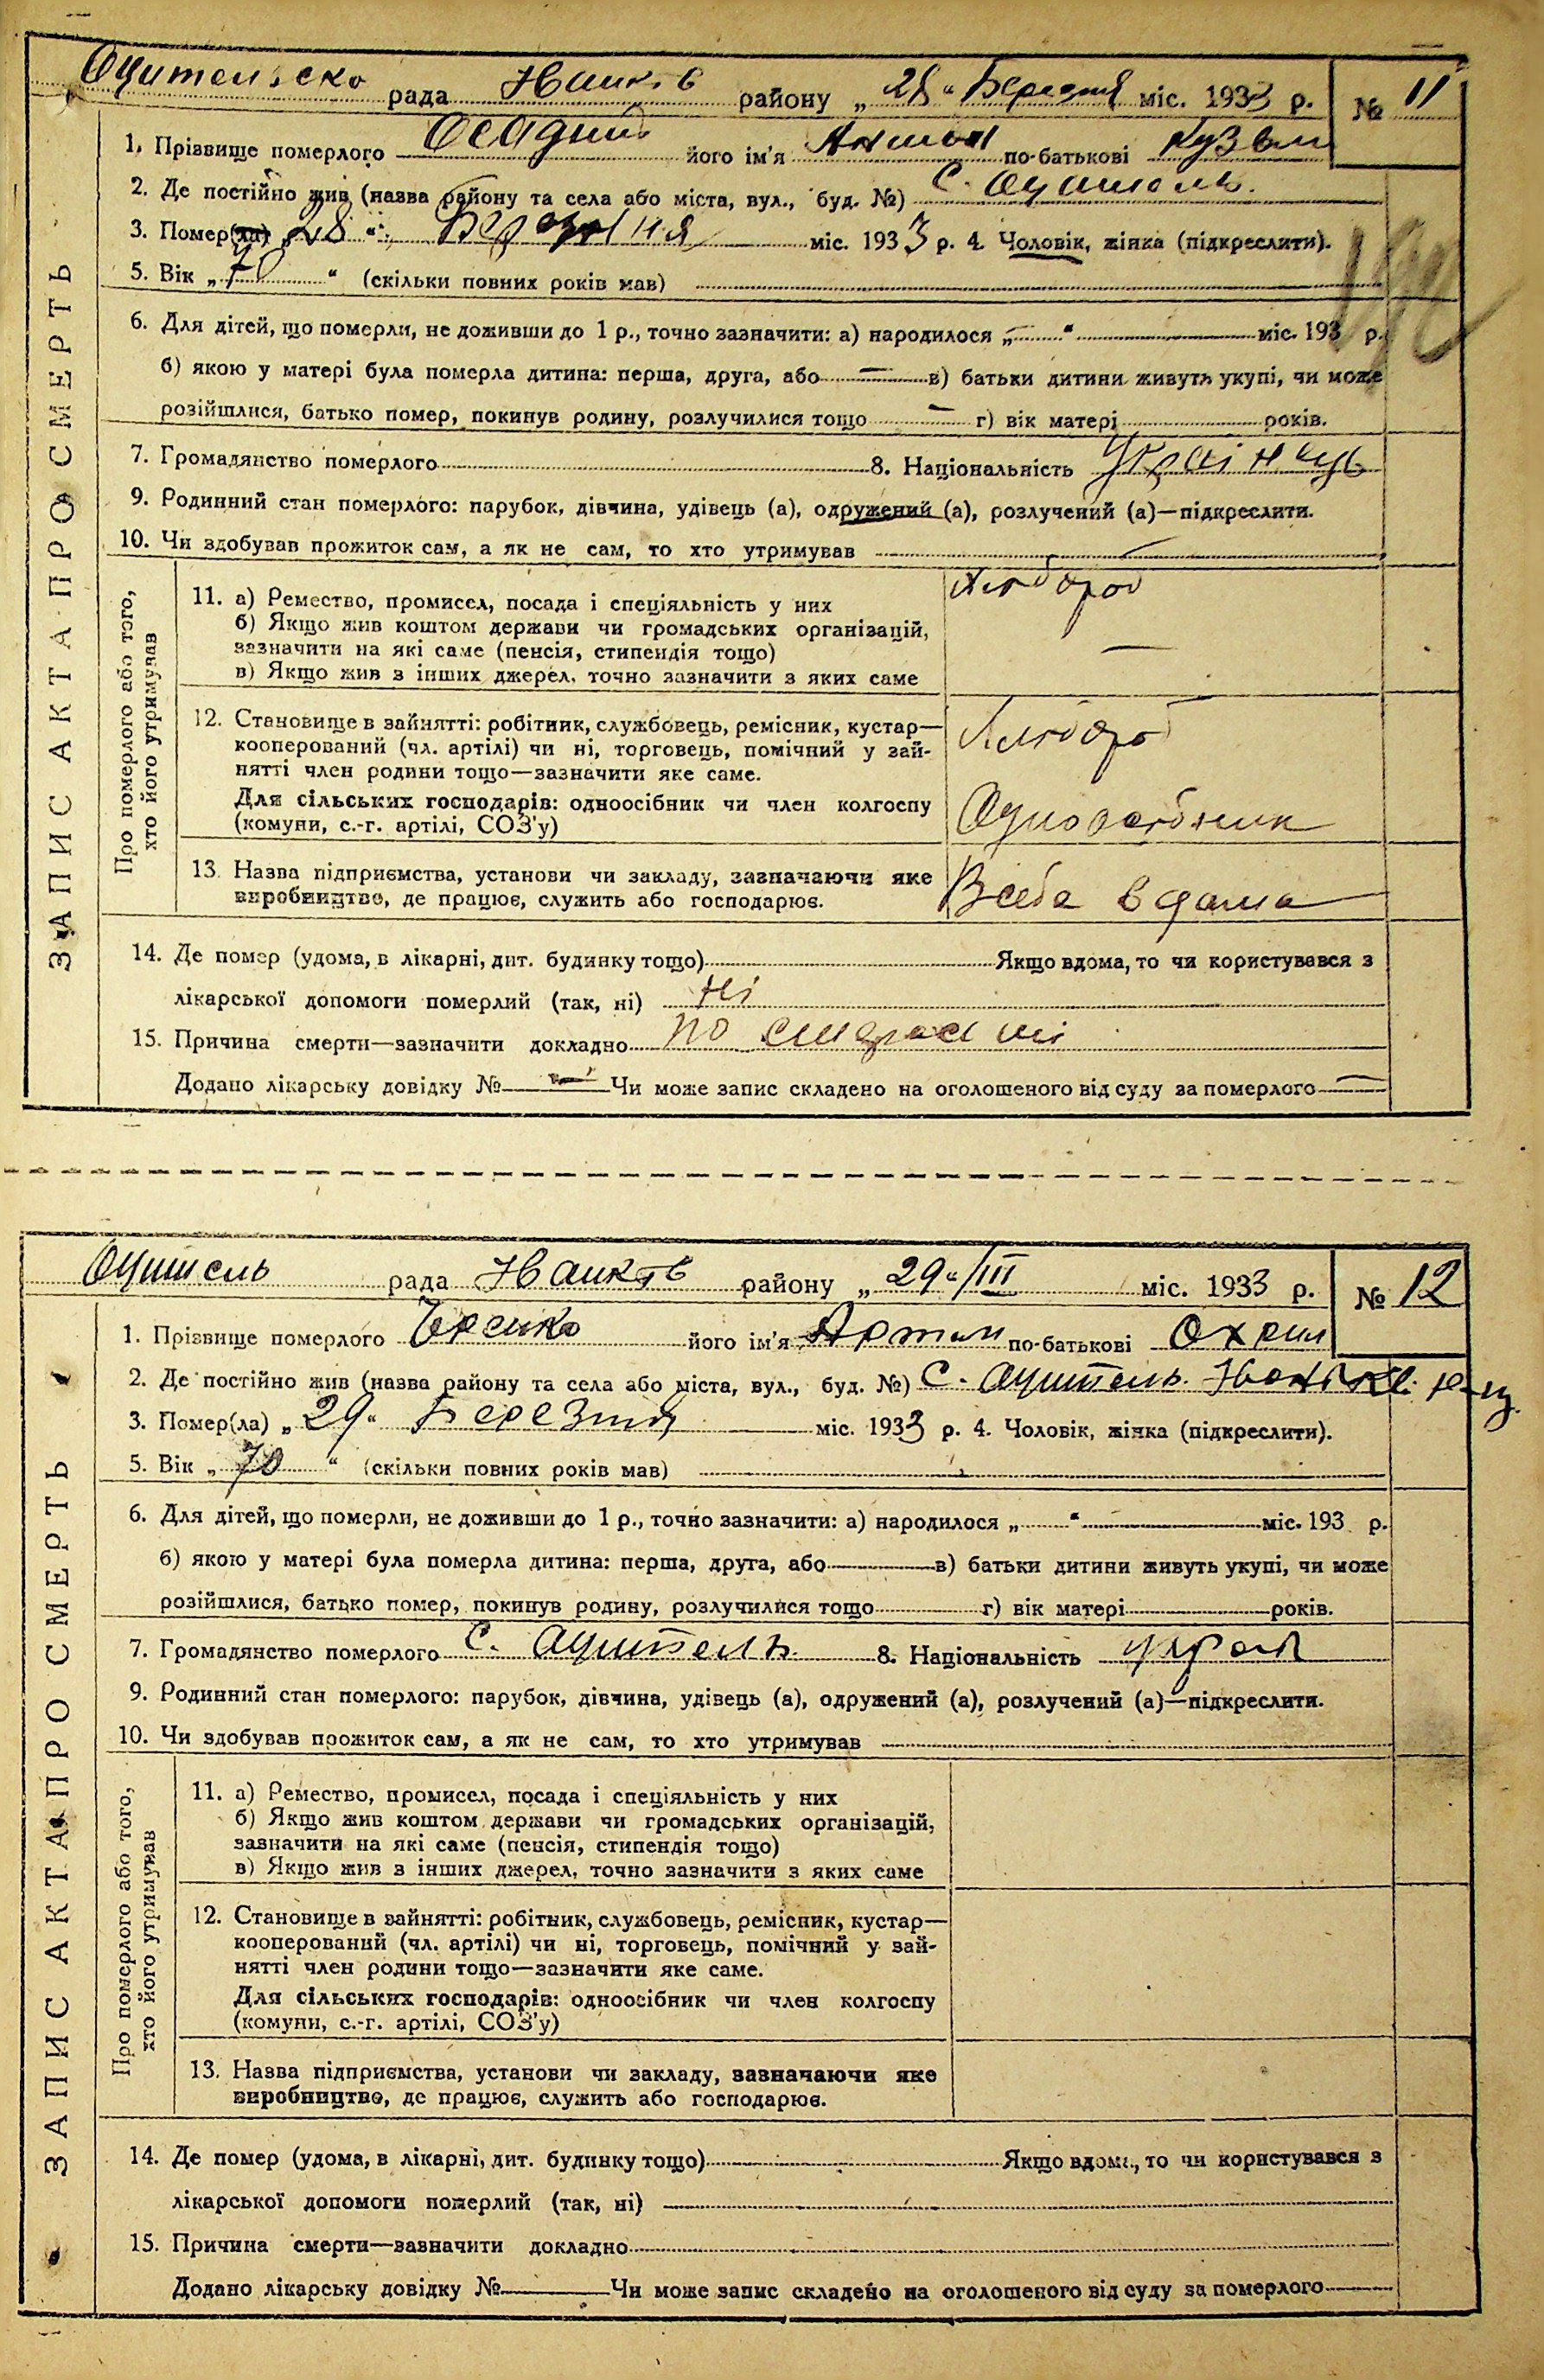 рада району „28“ Березня міс. 1933 р. № 11
1. Прізвище померлого Осадчий його ім'я Антон по-батькові Кузьм
2. Де постійно жив (назва району та села або міста, вул., буд. №) с.
3. Помер(ла) „28“ Березня міс. 1933 р. 4. Чоловік, жінка (підкреслити).
5. Вік „70“ (скільки повних років мав)
6. Для дітей, що померли, не доживши до 1 р., точно зазначити: а) народилося „ — “ міс. 193 р.
б) якою у матері була померла дитина: перша, друга, або — в) батьки дитини живуть укупі, чи може
розійшлися, батько помер, покинув родину, розлучилися тощо — г) вік матері років.
7. Громадянство померлого 8. Національність Українець
9. Родинний стан померлого: парубок, дівчина, удівець (а), одружений (а), розлучений (а)—підкреслити.
10. Чи здобував прожиток сам, а як не сам, то хто утримував —
ЗАПИС АКТА ПРО СМЕРТЬ
Про померлого або того,
хто його утримував
11. а) Ремество, промисел, посада і спеціяльність у них Хлібороб
б) Якщо жив коштом держави чи громадських організацій,
зазначити на які саме (пенсія, стипендія тощо) —
в) Якщо жив з інших джерел, точно зазначити з яких саме
12. Становище в зайнятті: робітник, службовець, ремісник, кустар— Хлібороб
кооперований (чл. артілі) чи ні, торговець, помічний у зай-
нятті член родини тощо—зазначити яке саме.
Для сільських господарів: одноосібник чи член колгоспу Одноосібник
(комуни, с.-г. артілі, СОЗ'у)
13. Назва підприємства, установи чи закладу, зазначаючи яке В себе вдома
виробництво, де працює, служить або господарює.
14. Де помер (удома, в лікарні, дит. будинку тощо) Якщо вдома, то чи користувався з
лікарської допомоги померлий (так, ні) Ні
15. Причина смерти—зазначити докладно по старості
Додано лікарську довідку № — Чи може запис складено на оголошеного від суду за померлого —
рада району „29“/III міс. 1933 р. № 12
1. Прізвище померлого його ім'я Артем по-батькові Охрим
2. Де постійно жив (назва району та села або міста, вул., буд. №) с.
3. Помер(ла) „29“ Березня міс. 1933 р. 4. Чоловік, жінка (підкреслити).
5. Вік „70“ (скільки повних років мав)
6. Для дітей, що померли, не доживши до 1 р., точно зазначити: а) народилося „ “ міс. 193 р.
б) якою у матері була померла дитина: перша, друга, або в) батьки дитини живуть укупі, чи може
розійшлися, батько помер, покинув родину, розлучилися тощо г) вік матері років.
7. Громадянство померлого с. 8. Національність
9. Родинний стан померлого: парубок, дівчина, удівець (а), одружений (а), розлучений (а)—підкреслити.
10. Чи здобував прожиток сам, а як не сам, то хто утримував
ЗАПИС АКТА ПРО СМЕРТЬ
Про померлого або того,
хто його утримував
11. а) Ремество, промисел, посада і спеціяльність у них
б) Якщо жив коштом держави чи громадських організацій,
зазначити на які саме (пенсія, стипендія тощо)
в) Якщо жив з інших джерел, точно зазначити з яких саме
12. Становище в зайнятті: робітник, службовець, ремісник, кустар—
кооперований (чл. артілі) чи ні, торговець, помічний у зай-
нятті член родини тощо—зазначити яке саме.
Для сільських господарів: одноосібник чи член колгоспу
(комуни, с.-г. артілі, СОЗ'у)
13. Назва підприємства, установи чи закладу, зазначаючи яке
виробництво, де працює, служить або господарює.
14. Де помер (удома, в лікарні, дит. будинку тощо) Якщо вдома, то чи користувався з
лікарської допомоги померлий (так, ні)
15. Причина смерти—зазначити докладно
Додано лікарську довідку № Чи може запис складено на оголошеного від суду за померлого